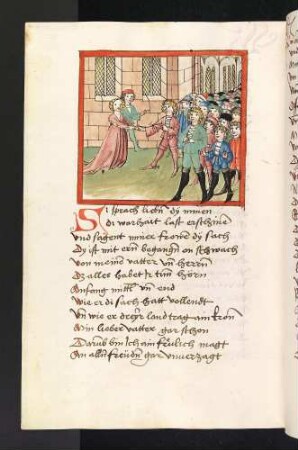 Si sprach liebn dÿ minen
di warhait last erschine
Vnd sagent miner frowē dÿ sach
Dÿ ist mit ern begangn on schwach
Von meinē vatter vn̄ herrn
Dz alles habet ir tun hörn
Anfang mittl vn̄ end
Wie er di sach hatt vollendt
Vn̄ wie er dreÿr land trag ain kron
Min lieber vatter gar schon
Darūb bin ich ain frölich magt
An alln freudn gar vnuerzagt